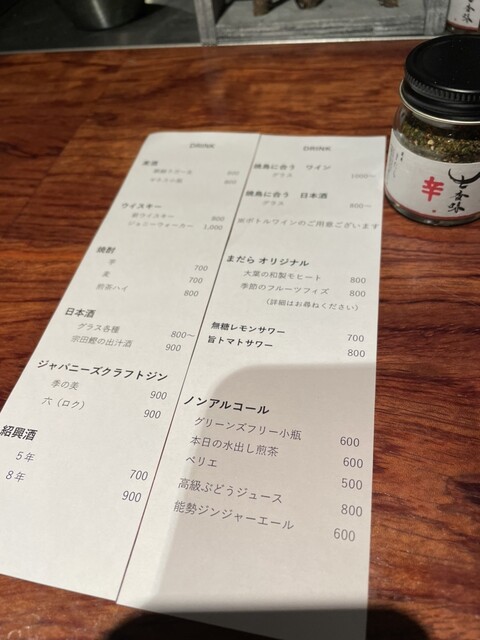 DRINK
麦酒
800
800
ウイスキー
ウイスキー 800
ジョニーウォーカー 1,000
焼酎
芋 700
麦 700
煎茶ハイ 800
日本酒
グラス各種 800〜
宗田鰹の出汁酒 900
ジャパニーズクラフトジン
季の美 900
六（ロク） 900
紹興酒
５年 700
８年 900
DRINK
焼鳥に合う ワイン
グラス 1000〜
焼鳥に合う 日本酒
グラス 800〜
※ボトルワインのご用意ございます
まだら オリジナル
大葉の和製モヒート 800
季節のフルーツフィズ 800
（詳細はお尋ねください）
無糖レモンサワー 700
旨トマトサワー 800
ノンアルコール
グリーンズフリー小瓶 600
本日の水出し煎茶 600
ペリエ 500
高級ぶどうジュース 800
能勢ジンジャーエール 600
辛